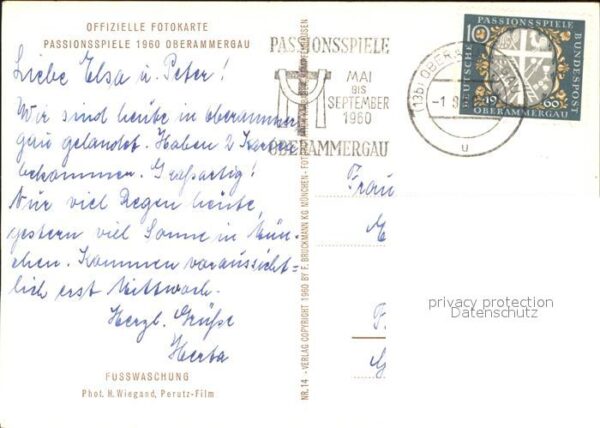 OFFIZIELLE FOTOKARTE
PASSIONSSPIELE 1960 OBERAMMERGAU
Liebe Elsa u. Peter!
Wir sind heute in oberammer
gau gelandet. Haben 2 Karten
bekommen. Großartig!
Nur viel Regen heute,
gestern viel Sonne in Mün-
chen. Kommen voraussicht-
lich erst Mittwoch.
Herzl. Grüße
Herta
FUSSWASCHUNG
Phot. H. Wiegand, Perutz-Film
NR. 14 - VERLAG COPYRIGHT 1960 BY F. BRUCKMANN KG MÜNCHEN - FOT
HAUSEN
PASSIONSSPIELE
MAI
BIS
SEPTEMBER
1960
OBERAMMERGAU
(13b) OBER
-1.
u
10
PASSIONSSPIELE
DEUTSCHE
BUNDESPOST
19 60
OBERAMMERGAU
Frau
privacy protection
Datenschutz